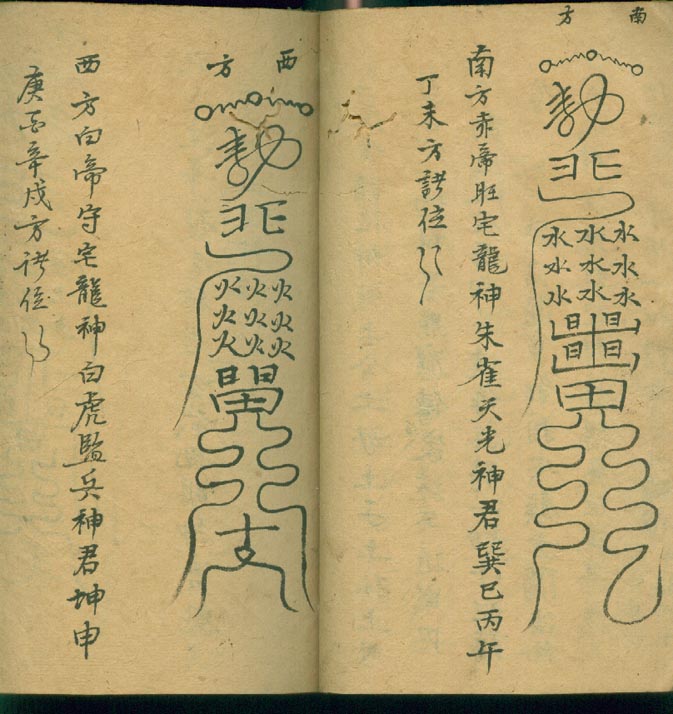 南方
水水水
水水水
水水水
南方赤帝旺宅龍神朱雀天光神君巽巳丙午
丁未方諸位
西方
火火火
火火火
火火火
西方白帝守宅龍神白虎監兵神君坤申
庚酉辛戌方諸位